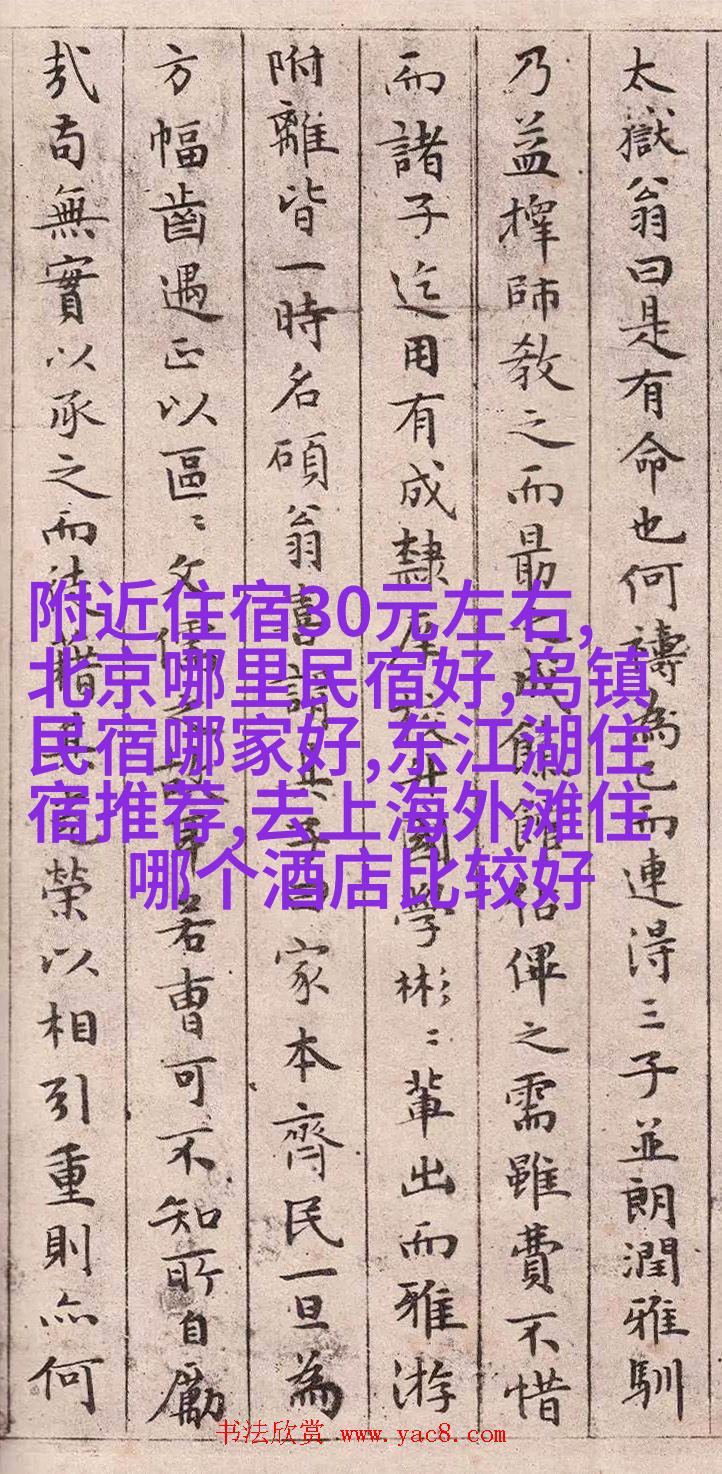 太嶽翁曰是有命也何禱為已而連得三子並朗潤雅馴
乃益擇師教之而最之成餼館佁俾之需雖費不惜
而諸子迄用有成隸庠校升國學彬〻輩出而雅游
附離皆一時名碩翁嘗謂其子曰家本齊民一旦為
方幅齒遇正以區〻文儒之故耳若曹可不知所自勵
哉苟無實以承之而徒藉其光榮以相引重則亦何
附近住宿30元左右,
北京哪里民宿好,乌镇
民宿哪家好,东江湖住
宿推荐,去上海外滩住
哪个酒店比较好
书法欣赏 www.yac8.com